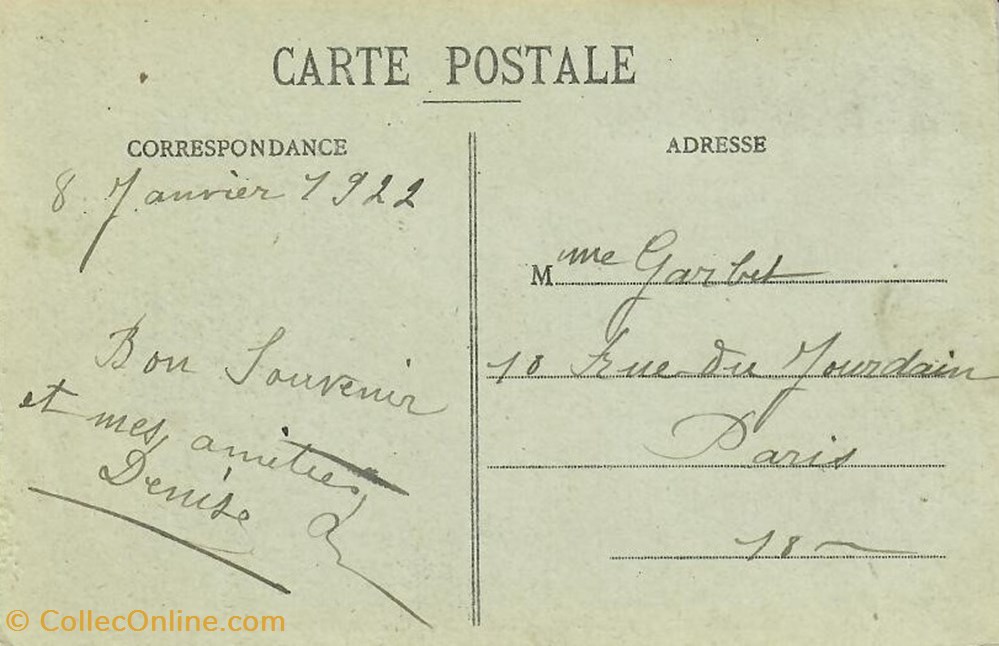 CARTE POSTALE
CORRESPONDANCE
8 Janvier 1922
Bon Souvenir
et mes amitiés
Denise
ADRESSE
Mme Garbet
18 rue du Jourdain
Paris
18
© CollecOnline.com